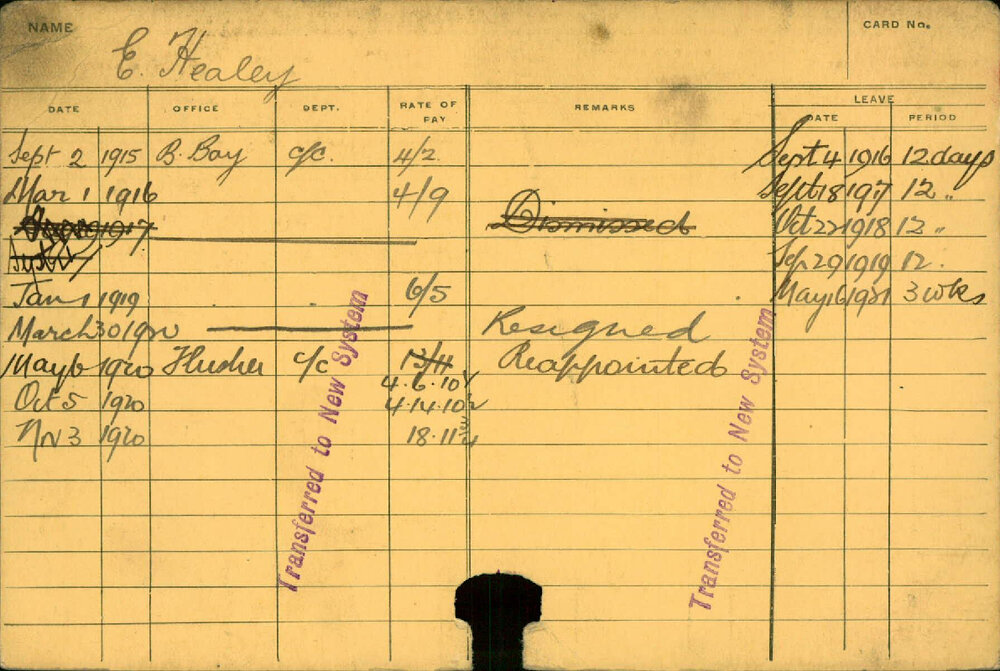 NAME E. Healey CARD No.
DATE OFFICE DEPT. RATE OF PAY REMARKS LEAVE
DATE PERIOD
Sept 2 1915 B. Bay c/c. 4/2 Sept 4 1916 12 days
Mar 1 1916 4/9 Sept 18 1917 12 "
1917 Dismissed Oct 22 1918 12 "
Sep 29 1919 12 "
Jan 1 1919 6/5 May 16 1921 3 wks
March 30 1920 Resigned
May 6 1920 c/c 13/11 Reappointed
4.6.10½
Oct 5 1920 4.14.10½
Nv 3 1920 18.11¾
Transferred to New System
Transferred to New System